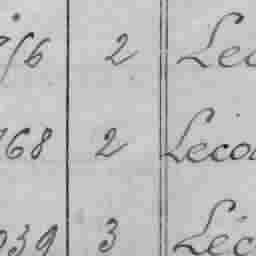 56 2 Lec
768 2 Lecou
039 3 Léc